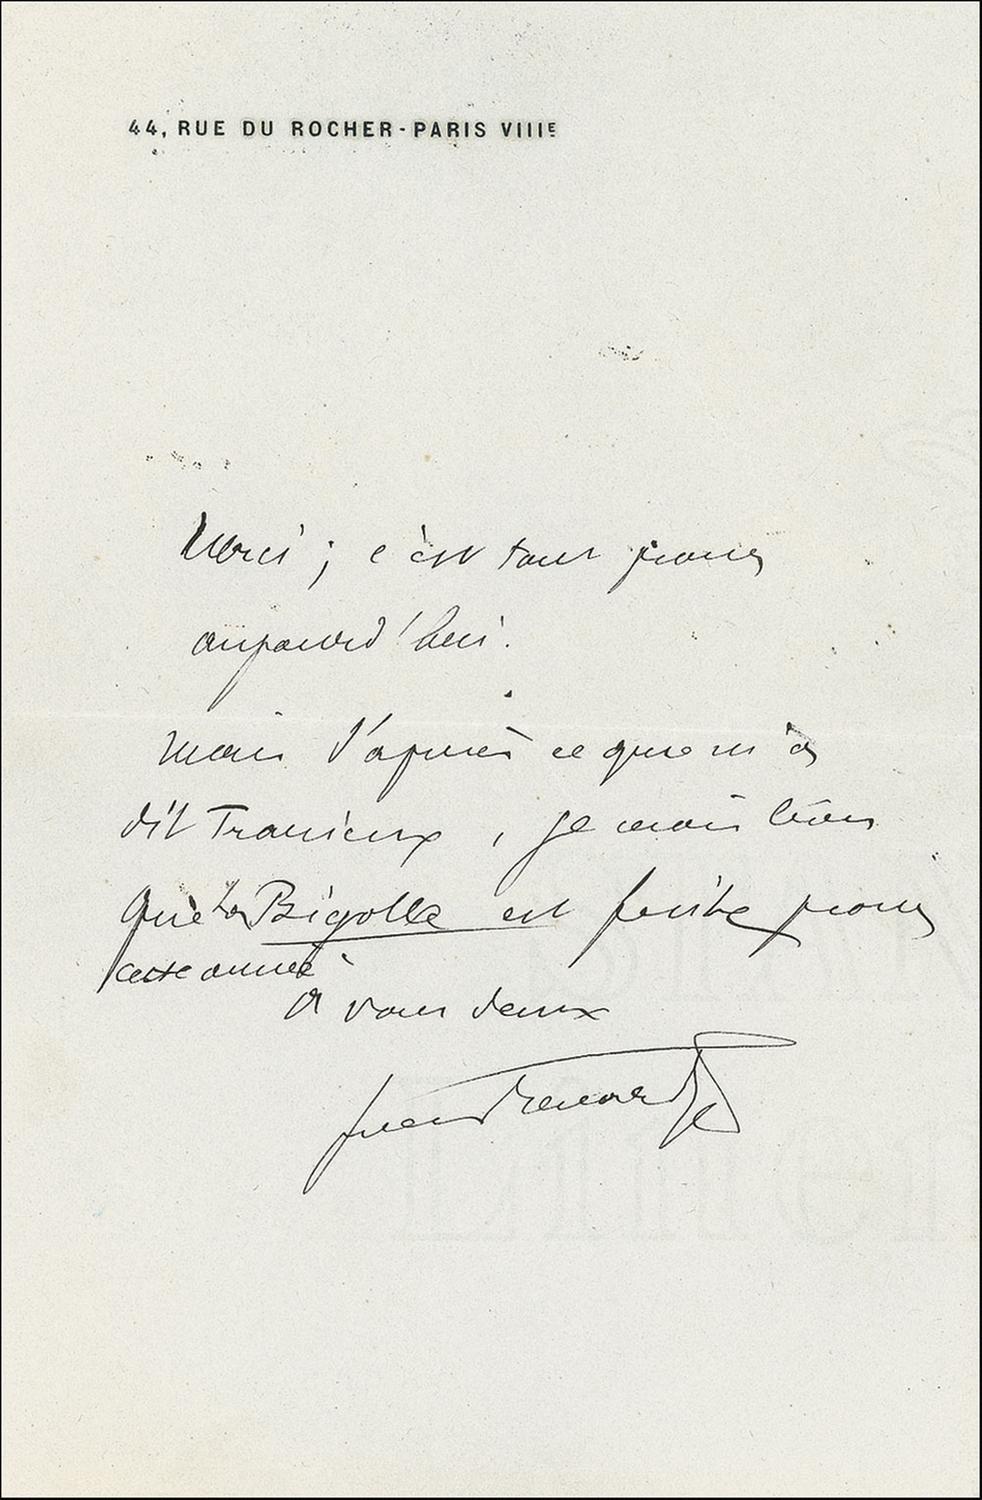 44, RUE DU ROCHER-PARIS VIIIE
Merci ; c'est tout pour
aujourd'hui.
Mais d'après ce que m'a
dit Tranieux, je crois bien
que la Bigotte est fuitue pour
cette année.
à vous deux
Jules Renard